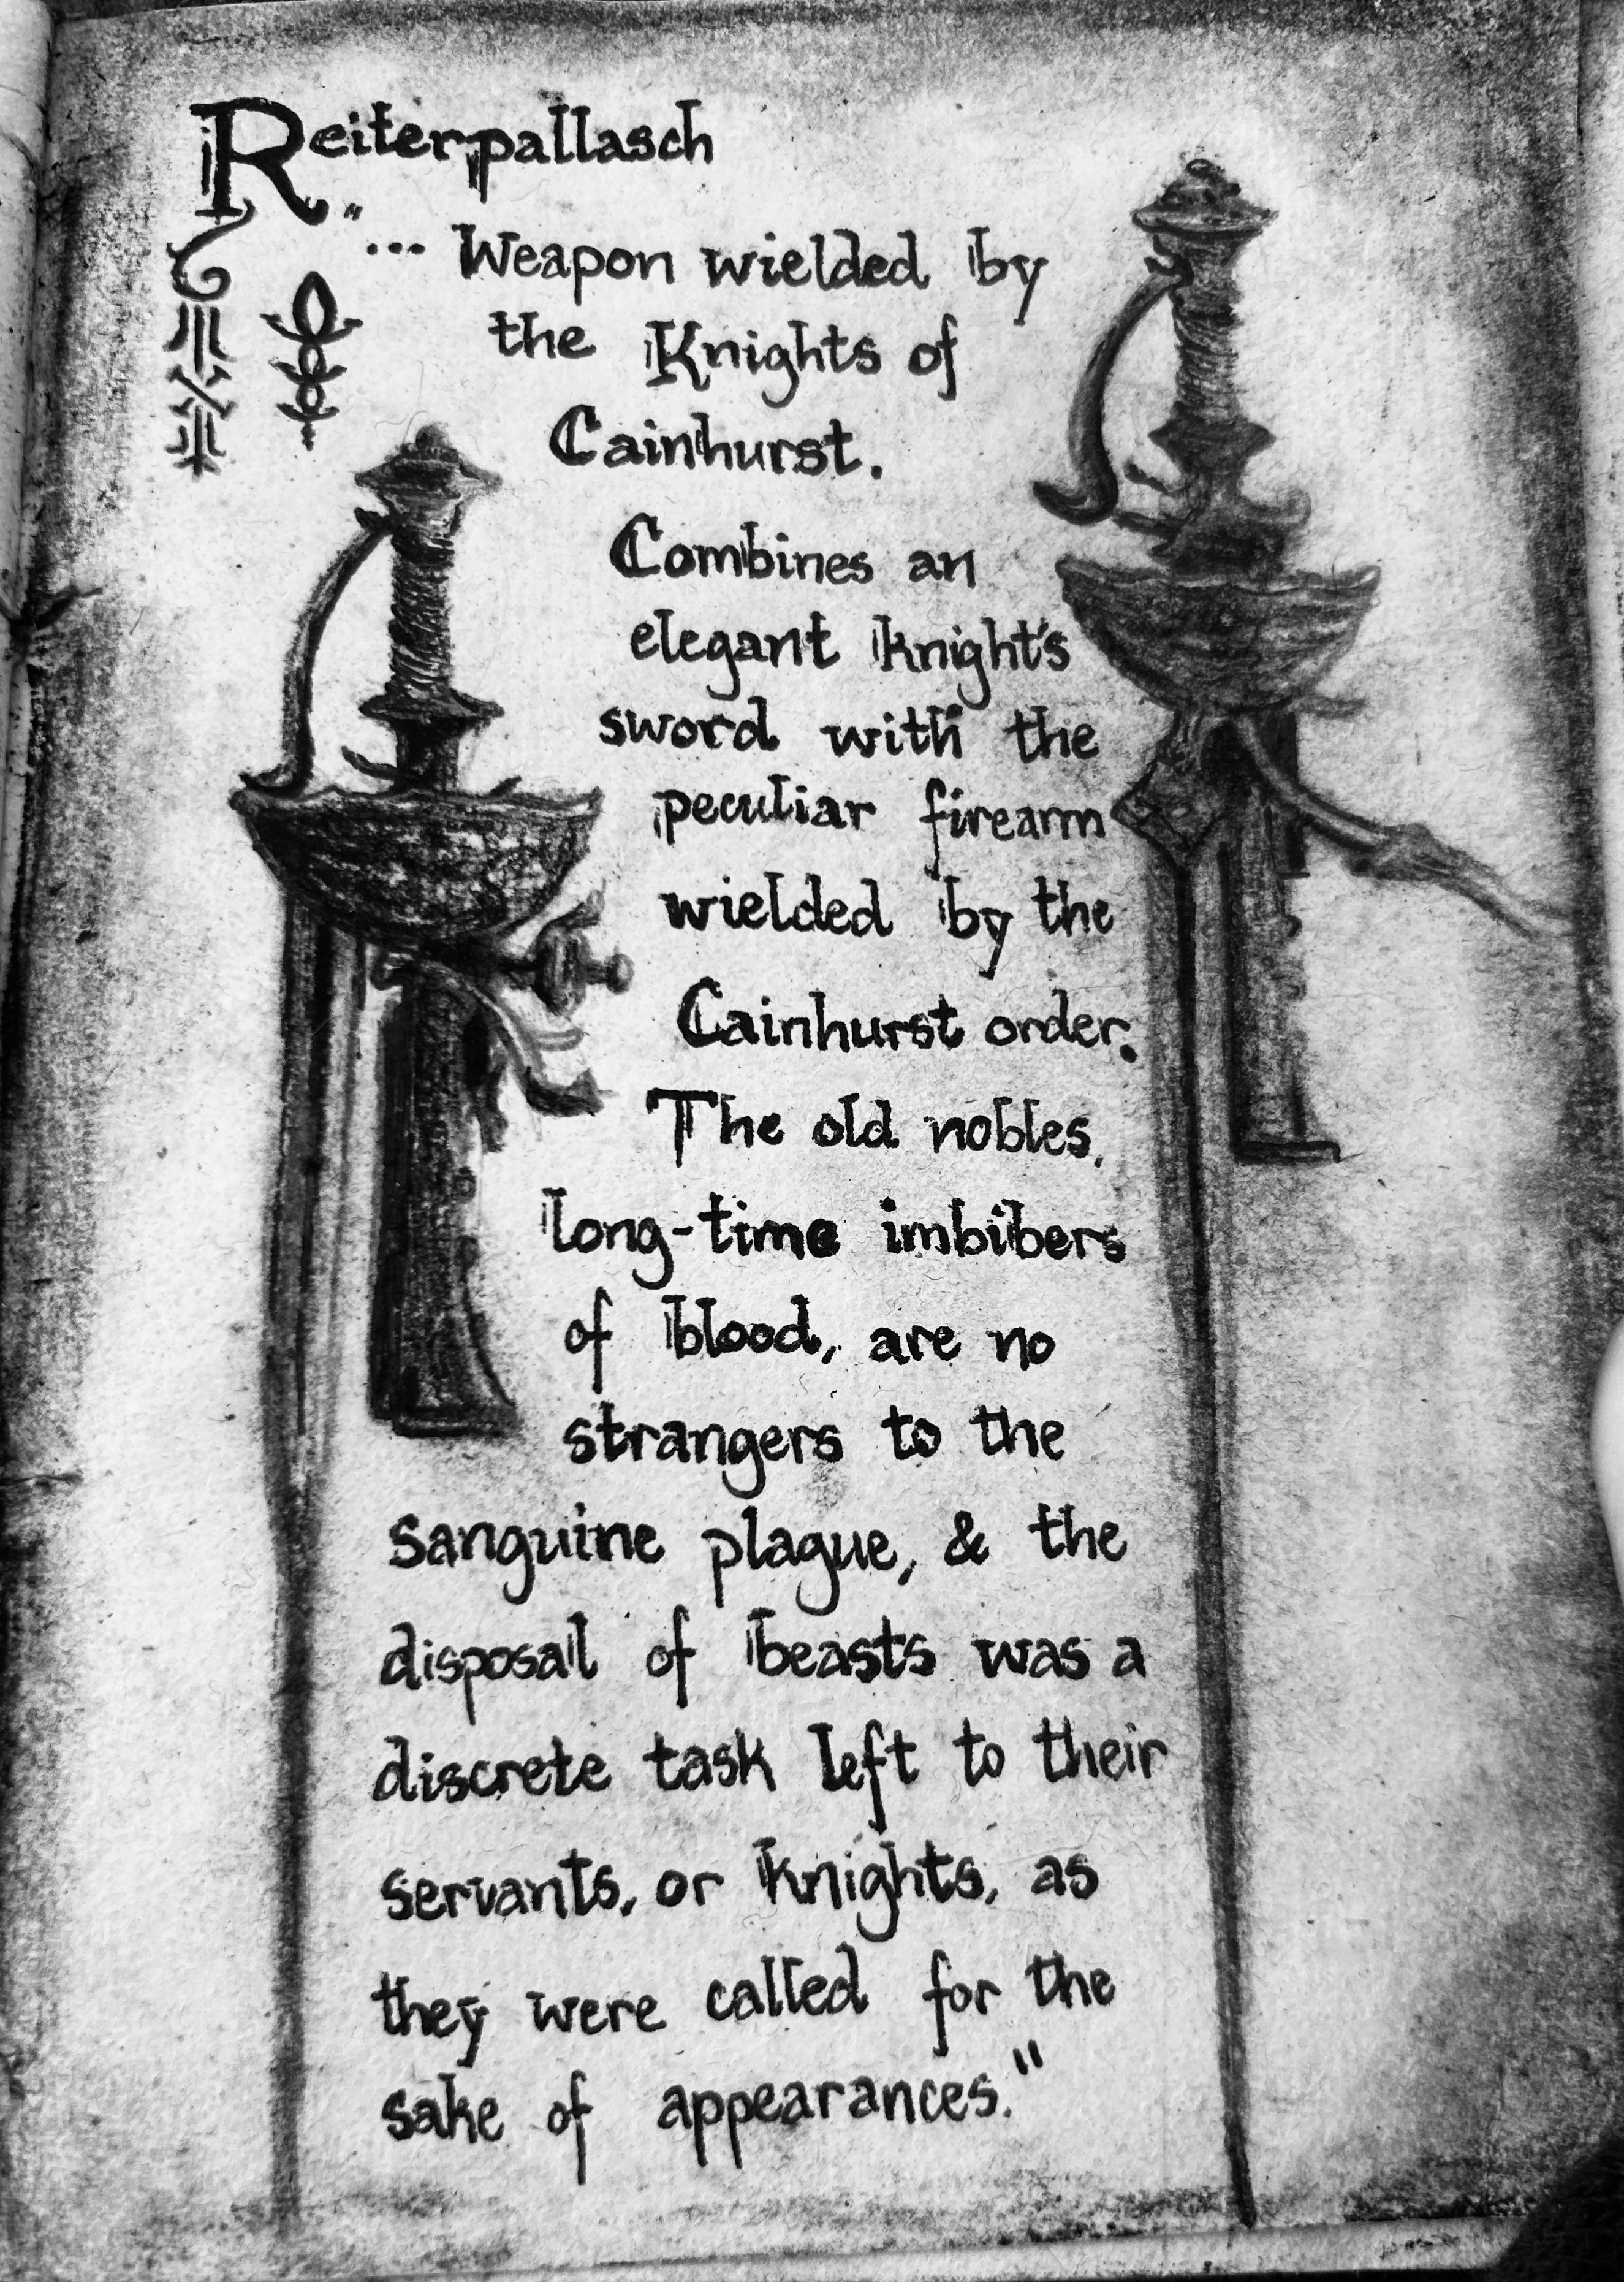 Reiterpallasch
"... Weapon wielded by
the Knights of
Cainhurst.
Combines an
elegant knight's
sword with the
peculiar firearm
wielded by the
Cainhurst order.
The old nobles,
long-time imbibers
of blood, are no
strangers to the
sanguine plague, & the
disposal of beasts was a
discrete task left to their
servants, or knights, as
they were called for the
sake of appearances."